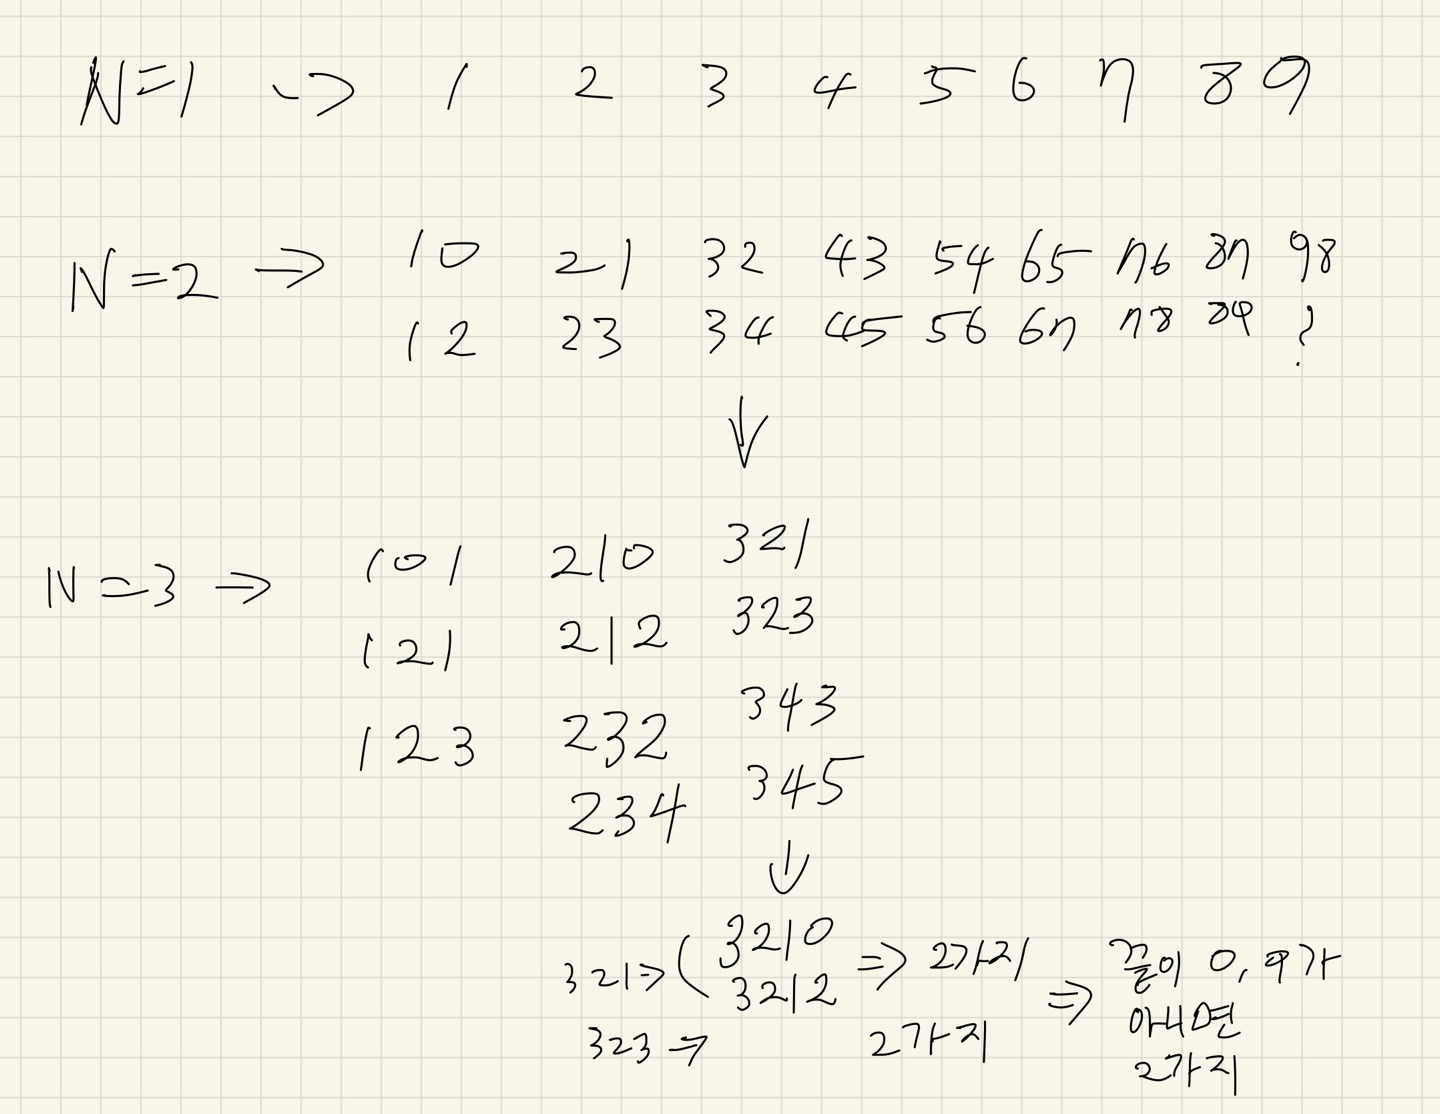 N=1 -> 1 2 3 4 5 6 7 8 9
N=2 => 10 21 32 43 54 65 76 87 98
12 23 34 45 56 67 78 89 ?
↓
N=3 => 101 210 321
121 212 323
123 232 343
234 345
↓
321=> ( 3210 => 2가지 => 끝이 0, 9가
3212 아니면
323 => 2가지 2가지